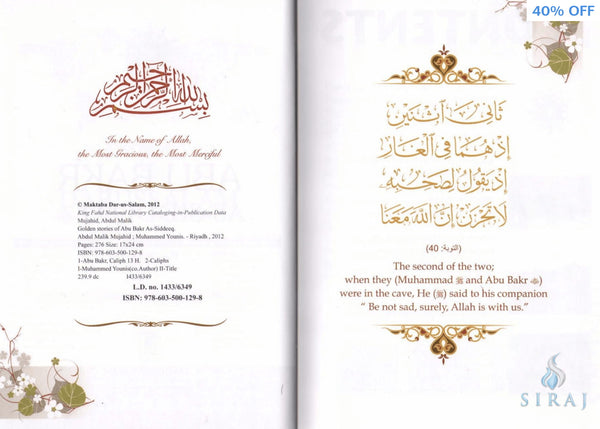 40% OFF
بسم الله الرحمن الرحيم
In the Name of Allah,
the Most Gracious, the Most Merciful
© Maktaba Dar-us-Salam, 2012
King Fahd National Library Cataloging-in-Publication Data
Mujahid, Abdul Malik
Golden stories of Abu Bakr As-Siddeeq.
Abdul Malik Mujahid ; Muhammed Younis. - Riyadh , 2012
Pages: 276 Size: 17x24 cm
ISBN: 978-603-500-129-8
1-Abu Bakr, Caliph 13 H. 2-Caliphs
I-Muhammed Younis(co.Author) II-Title
239.9 dc 1433/6349
L.D. no. 1433/6349
ISBN: 978-603-500-129-8
ثَانِيَ اثْنَيْنِ
إِذْ هُمَا فِي الْغَارِ
إِذْ يَقُولُ لِصَاحِبِهِ
لَا تَحْزَنْ إِنَّ اللَّهَ مَعَنَا
(التوبة: 40)
The second of the two;
when they (Muhammad ﷺ and Abu Bakr)
were in the cave, He (ﷺ) said to his companion
“ Be not sad, surely, Allah is with us.”
SIRAJ